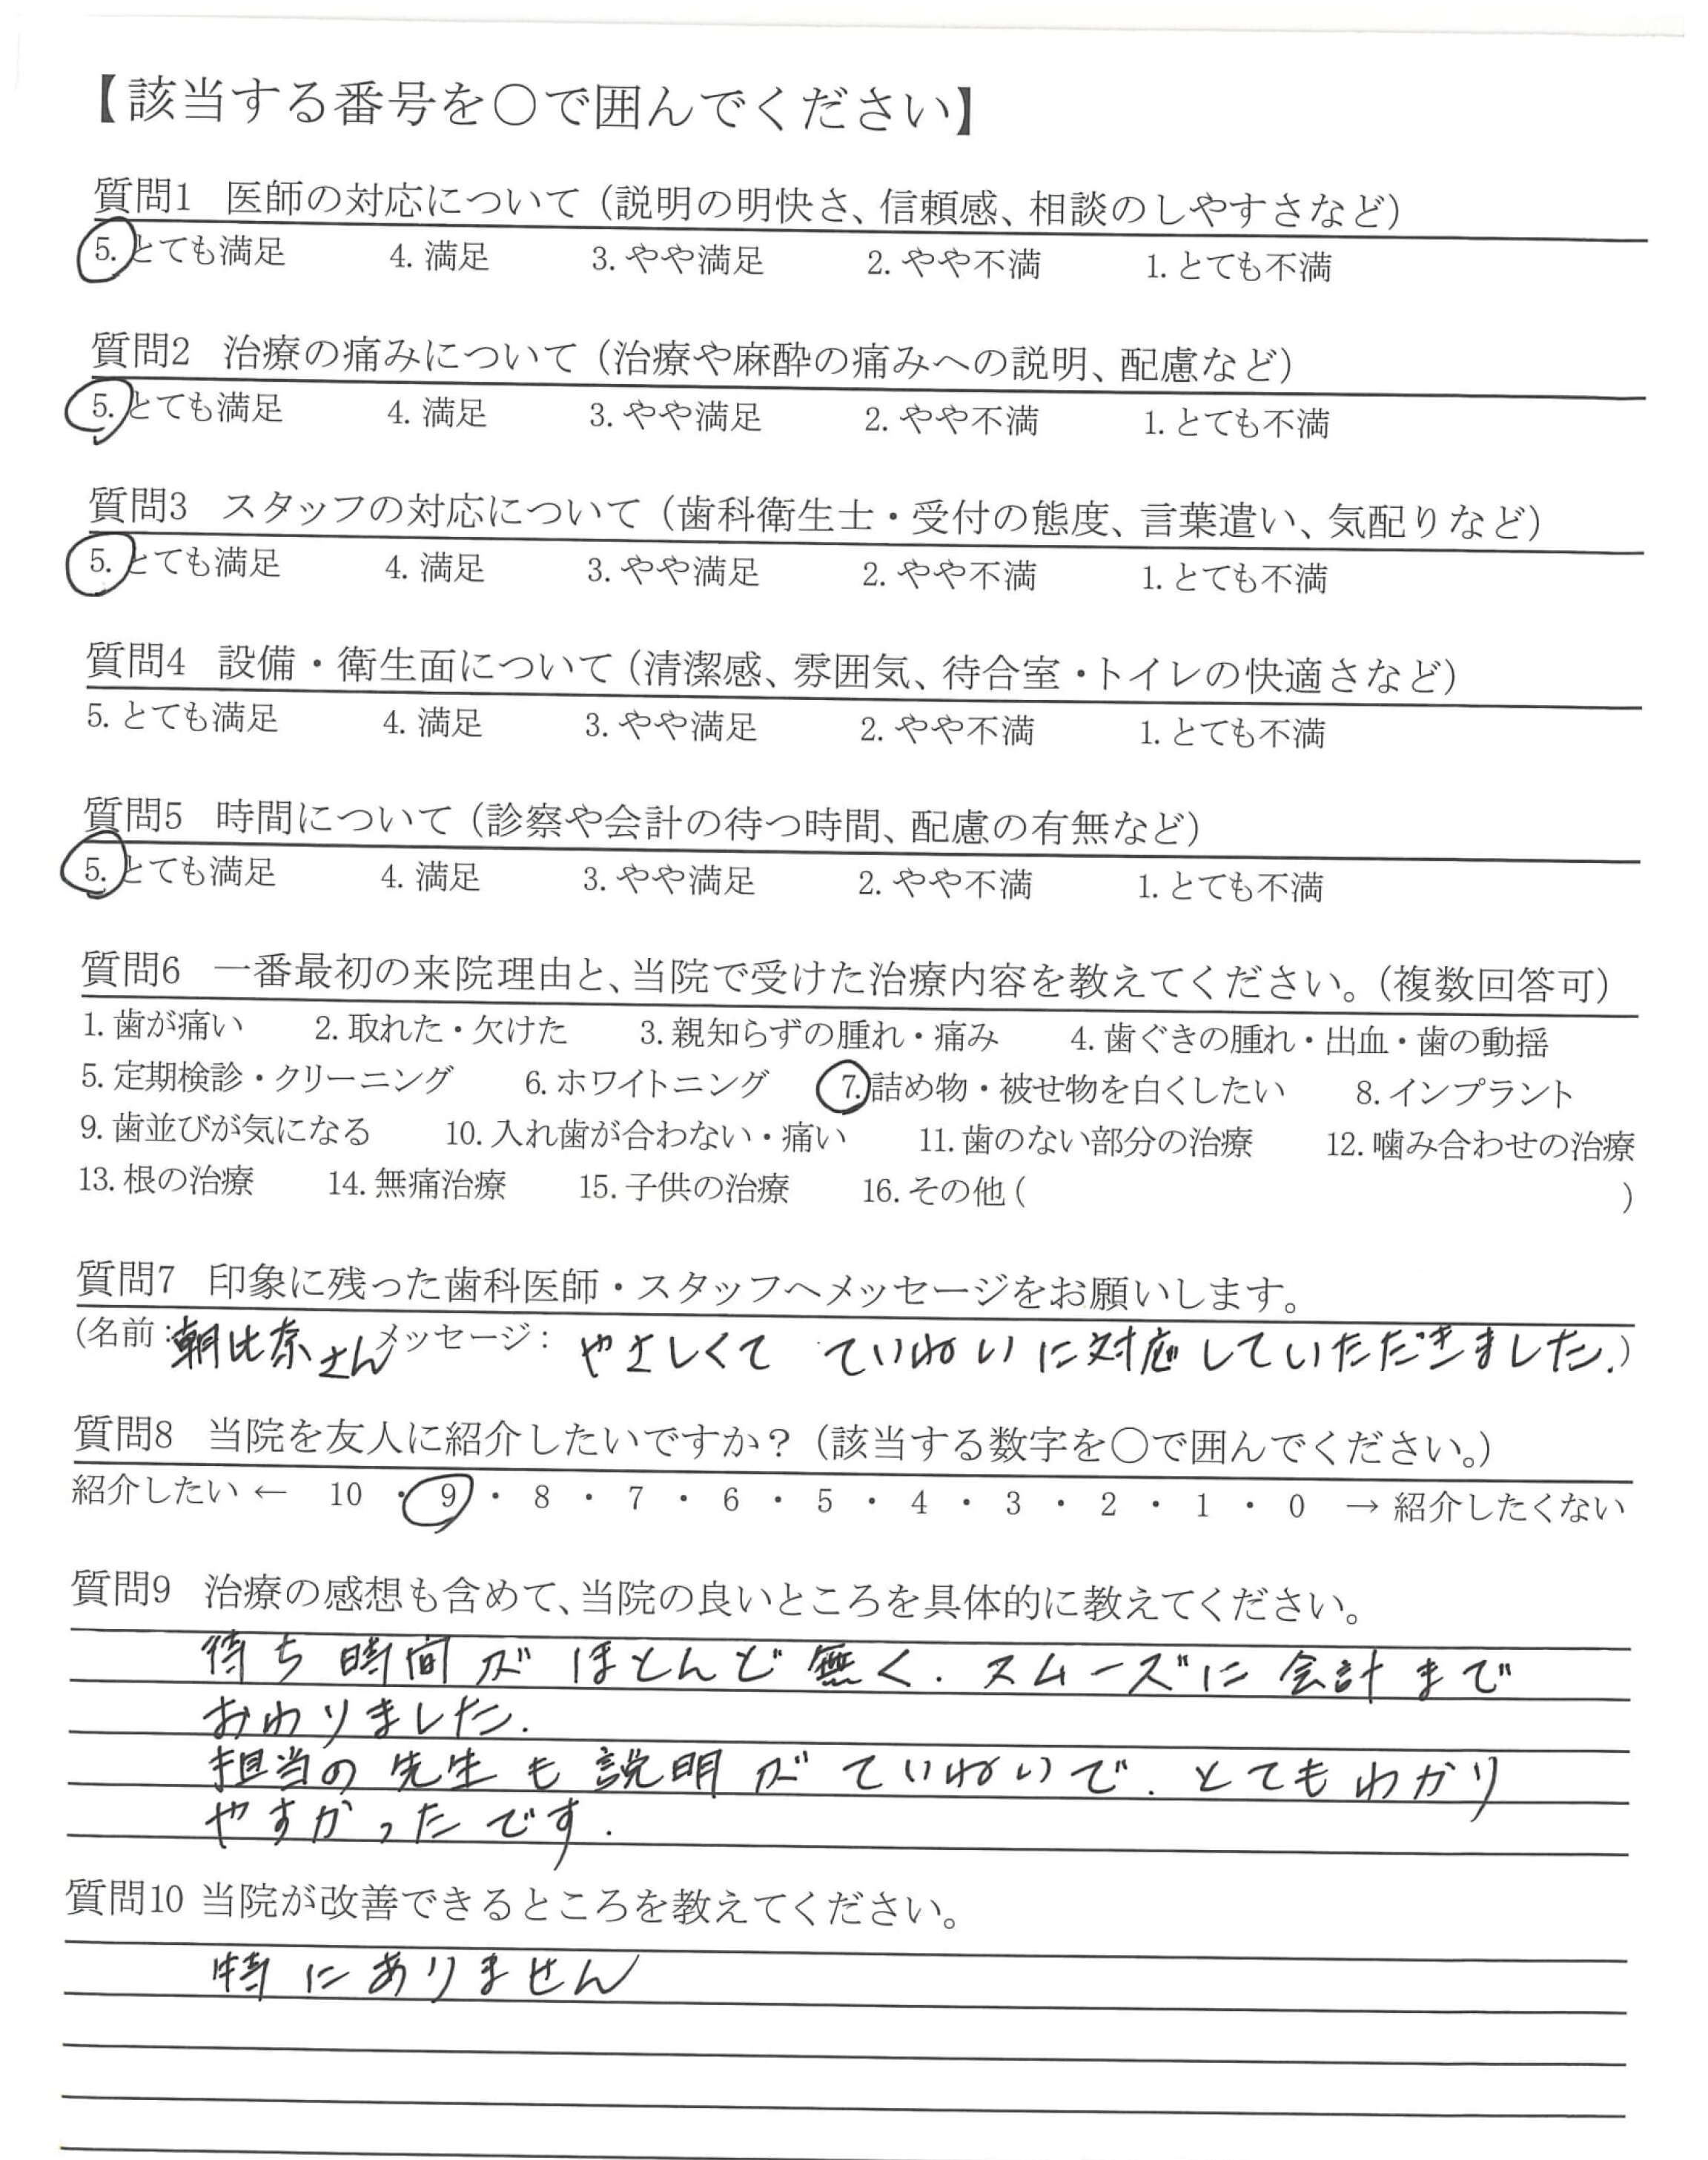 【該当する番号を○で囲んでください】
質問1 医師の対応について（説明の明快さ、信頼感、相談のしやすさなど）
5. とても満足 4. 満足 3. やや満足 2. やや不満 1. とても不満
質問2 治療の痛みについて（治療や麻酔の痛みへの説明、配慮など）
5. とても満足 4. 満足 3. やや満足 2. やや不満 1. とても不満
質問3 スタッフの対応について（歯科衛生士・受付の態度、言葉遣い、気配りなど）
5. とても満足 4. 満足 3. やや満足 2. やや不満 1. とても不満
質問4 設備・衛生面について（清潔感、雰囲気、待合室・トイレの快適さなど）
5. とても満足 4. 満足 3. やや満足 2. やや不満 1. とても不満
質問5 時間について（診察や会計の待つ時間、配慮の有無など）
5. とても満足 4. 満足 3. やや満足 2. やや不満 1. とても不満
質問6 一番最初の来院理由と、当院で受けた治療内容を教えてください。（複数回答可）
1. 歯が痛い 2. 取れた・欠けた 3. 親知らずの腫れ・痛み 4. 歯ぐきの腫れ・出血・歯の動揺
5. 定期検診・クリーニング 6. ホワイトニング 7. 詰め物・被せ物を白くしたい 8. インプラント
9. 歯並びが気になる 10. 入れ歯が合わない・痛い 11. 歯のない部分の治療 12. 噛み合わせの治療
13. 根の治療 14. 無痛治療 15. 子供の治療 16. その他（ ）
質問7 印象に残った歯科医師・スタッフへメッセージをお願いします。
（名前：朝比奈さん メッセージ： やさしくて ていねいに対応していただきました.）
質問8 当院を友人に紹介したいですか？（該当する数字を○で囲んでください。）
紹介したい ← 10 ・ 9 ・ 8 ・ 7 ・ 6 ・ 5 ・ 4 ・ 3 ・ 2 ・ 1 ・ 0 → 紹介したくない
質問9 治療の感想も含めて、当院の良いところを具体的に教えてください。
待ち時間がほとんど無く. スムーズに会計まで
おわりました.
担当の先生も説明がていねいで. とてもわかり
やすかったです.
質問10 当院が改善できるところを教えてください。
特にありません